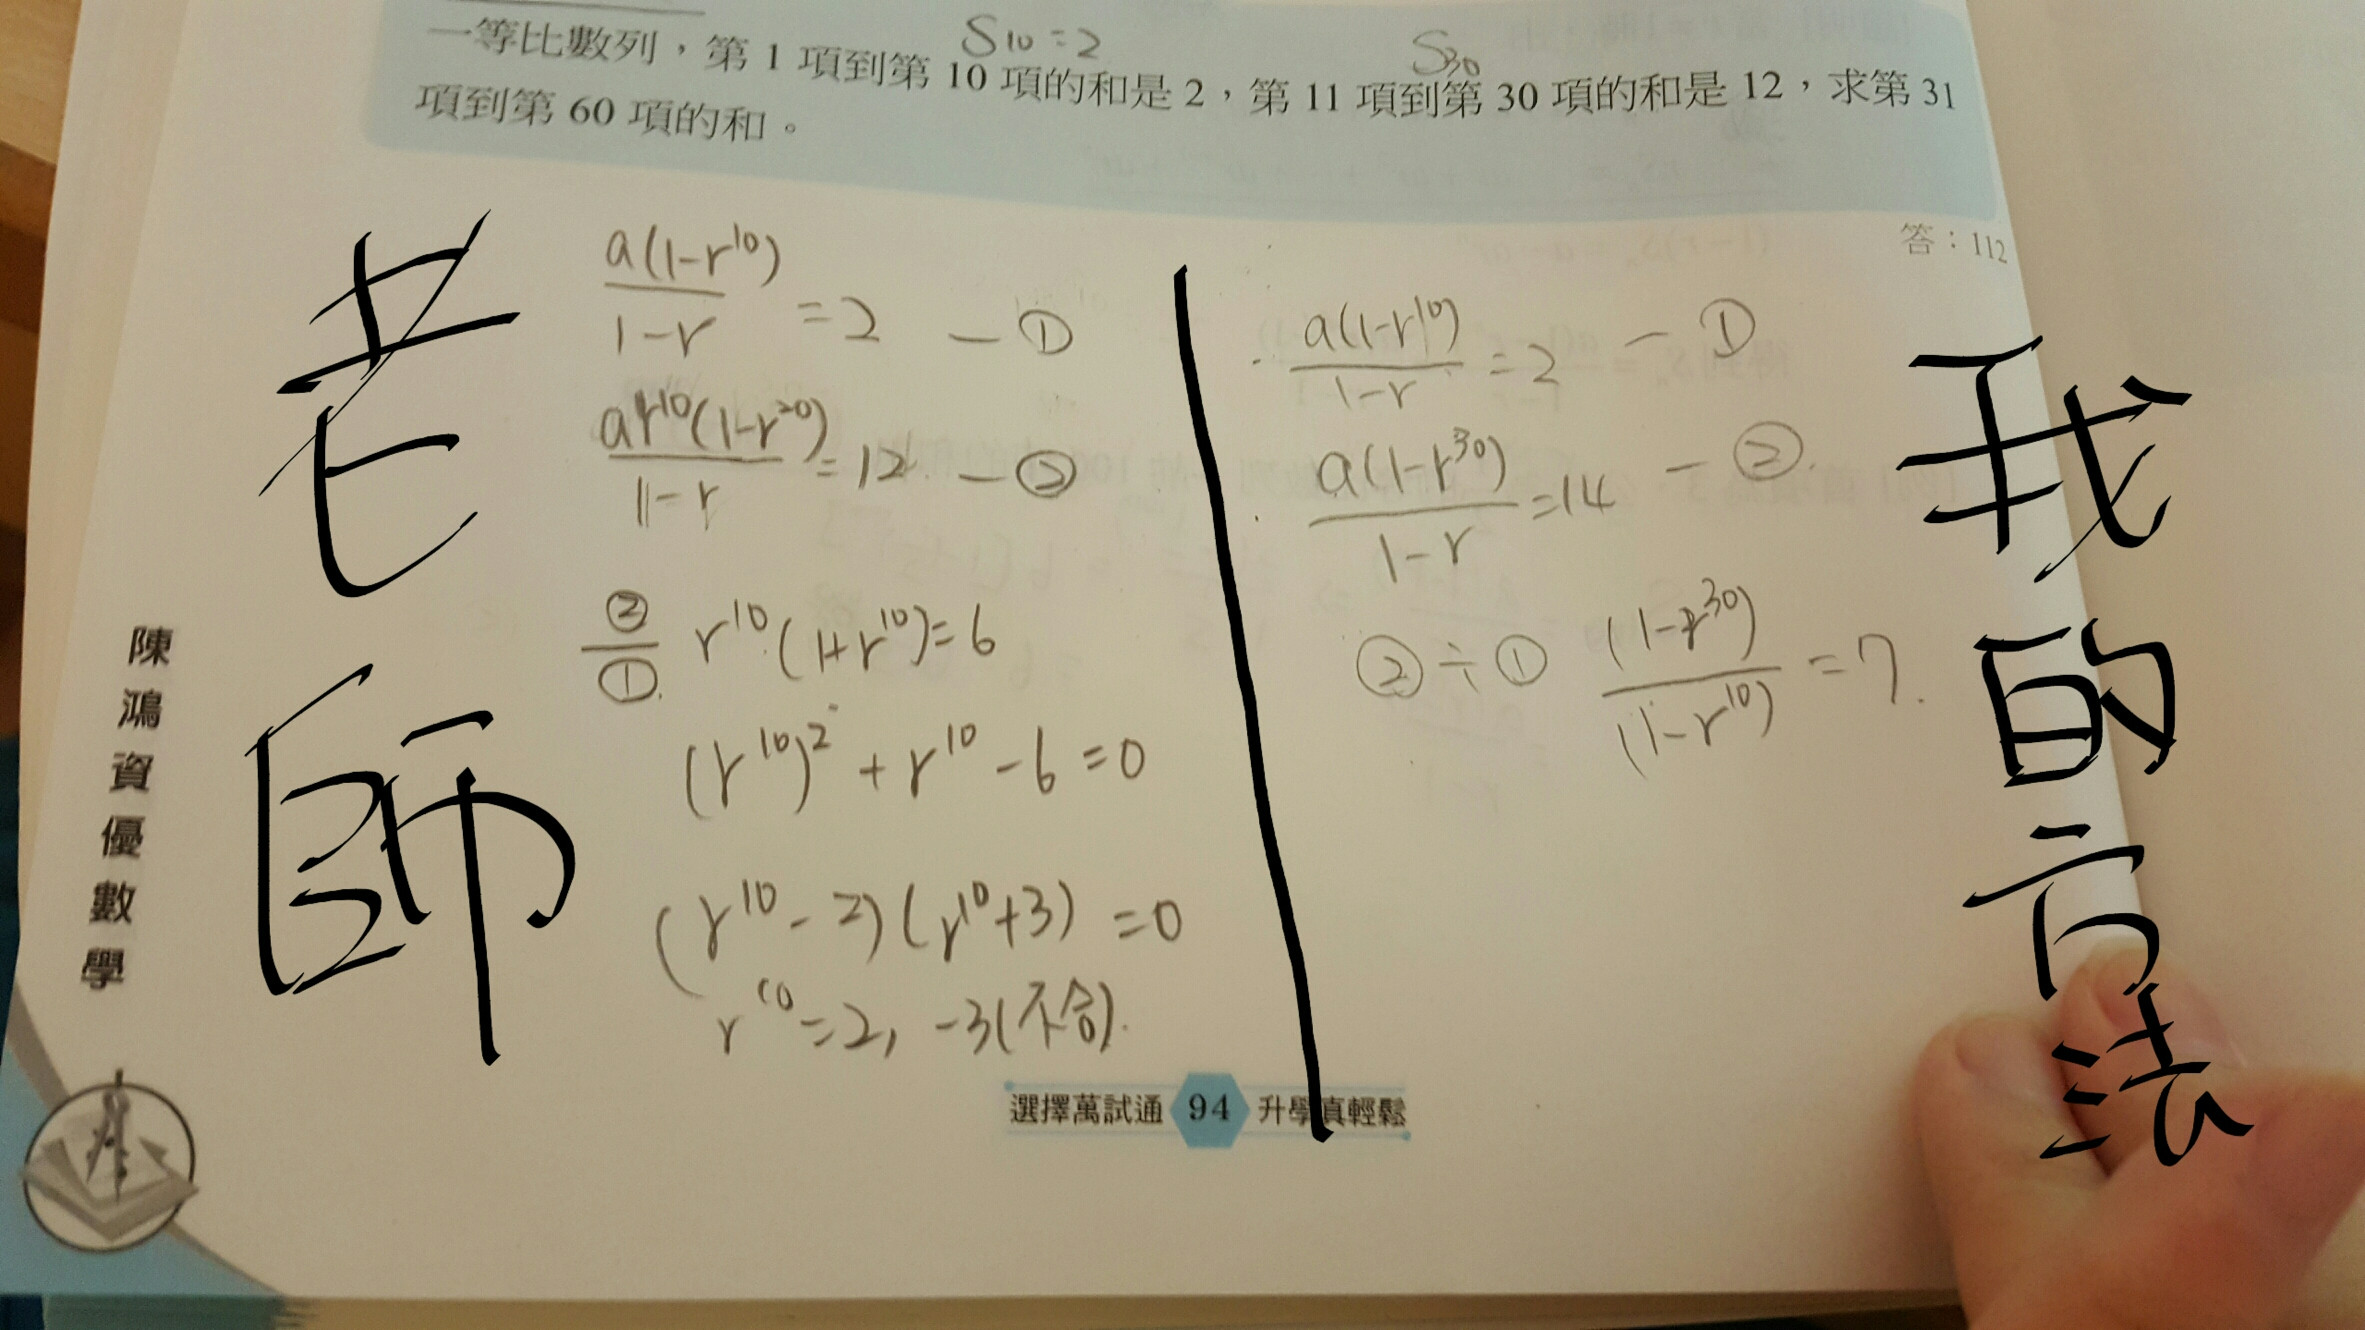 S10=2
S30
一等比數列，第 1 項到第 10 項的和是 2，第 11 項到第 30 項的和是 12，求第 31
項到第 60 項的和。
答：112
老師
a(1-r^10)/(1-r) = 2 — ①
ar^10(1-r^20)/(1-r) = 12 — ②
②/① r^10(1+r^10)=6
(r^10)^2 + r^10 - 6 = 0
(r^10 - 2)(r^10+3) = 0
r^10 = 2, -3(不合).
我的方法
a(1-r^10)/(1-r) = 2 — ①
a(1-r^30)/(1-r) = 14 — ②.
②÷① (1-r^30)/(1-r^10) = 7.
陳鴻資優數學
選擇萬試通 94 升學真輕鬆